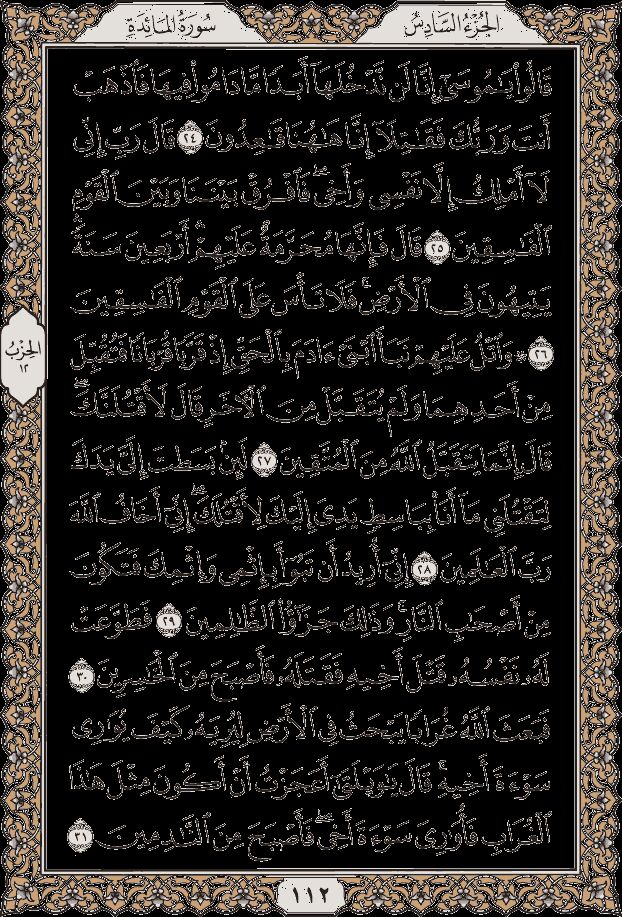 الجُزْءُ السَّادِسُ
سُورَةُ المَائِدَةِ
قَالُوا۟ يَـٰمُوسَىٰٓ إِنَّا لَن نَّدْخُلَهَآ أَبَدًا مَّا دَامُوا۟ فِيهَا فَٱذْهَبْ
أَنتَ وَرَبُّكَ فَقَـٰتِلَآ إِنَّا هَـٰهُنَا قَـٰعِدُونَ ٢٤ قَالَ رَبِّ إِنِّى
لَآ أَمْلِكُ إِلَّا نَفْسِى وَأَخِى ۖ فَٱفْرُقْ بَيْنَنَا وَبَيْنَ ٱلْقَوْمِ
ٱلْفَـٰسِقِينَ ٢٥ قَالَ فَإِنَّهَا مُحَرَّمَةٌ عَلَيْهِمْ ۛ أَرْبَعِينَ سَنَةً ۛ
يَتِيهُونَ فِى ٱلْأَرْضِ ۚ فَلَا تَأْسَ عَلَى ٱلْقَوْمِ ٱلْفَـٰسِقِينَ
٢٦ ۞ وَٱتْلُ عَلَيْهِمْ نَبَأَ ٱبْنَىْ ءَادَمَ بِٱلْحَقِّ إِذْ قَرَّبَا قُرْبَانًا فَتُقُبِّلَ
مِنْ أَحَدِهِمَا وَلَمْ يُتَقَبَّلْ مِنَ ٱلْـَٔاخَرِ قَالَ لَأَقْتُلَنَّكَ ۖ
قَالَ إِنَّمَا يَتَقَبَّلُ ٱللَّهُ مِنَ ٱلْمُتَّقِينَ ٢٧ لَئِنۢ بَسَطتَ إِلَىَّ يَدَكَ
لِتَقْتُلَنِى مَآ أَنَا۠ بِبَاسِطٍ يَدِىَ إِلَيْكَ لِأَقْتُلَكَ ۖ إِنِّىٓ أَخَافُ ٱللَّهَ
رَبَّ ٱلْعَـٰلَمِينَ ٢٨ إِنِّىٓ أُرِيدُ أَن تَبُوٓأَ بِإِثْمِى وَإِثْمِكَ فَتَكُونَ
مِنْ أَصْحَـٰبِ ٱلنَّارِ ۚ وَذَٰلِكَ جَزَٰٓؤُا۟ ٱلظَّـٰلِمِينَ ٢٩ فَطَوَّعَتْ
لَهُۥ نَفْسُهُۥ قَتْلَ أَخِيهِ فَقَتَلَهُۥ فَأَصْبَحَ مِنَ ٱلْخَـٰسِرِينَ ٣٠
فَبَعَثَ ٱللَّهُ غُرَابًا يَبْحَثُ فِى ٱلْأَرْضِ لِيُرِيَهُۥ كَيْفَ يُوَٰرِى
سَوْءَةَ أَخِيهِ ۚ قَالَ يَـٰوَيْلَتَىٰٓ أَعَجَزْتُ أَنْ أَكُونَ مِثْلَ هَـٰذَا
ٱلْغُرَابِ فَأُوَٰرِىَ سَوْءَةَ أَخِى ۖ فَأَصْبَحَ مِنَ ٱلنَّـٰدِمِينَ ٣١
الحِزْبُ
١٢
١١٢